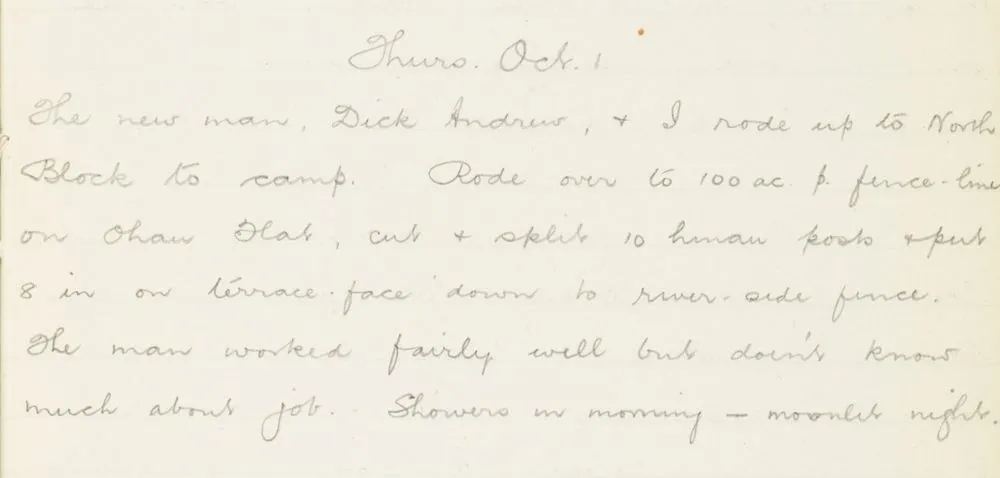 Thurs. Oct. 1
The new man, Dick Andrew, & I rode up to North
Block to camp. Rode over to 100 ac. p. fence-line
on Ohau Flat, cut & split 10 hinau posts & put
8 in on terrace-face down to river-side fence.
The man worked fairly well but doesn't know
much about job. Showers in morning — moonlit night.